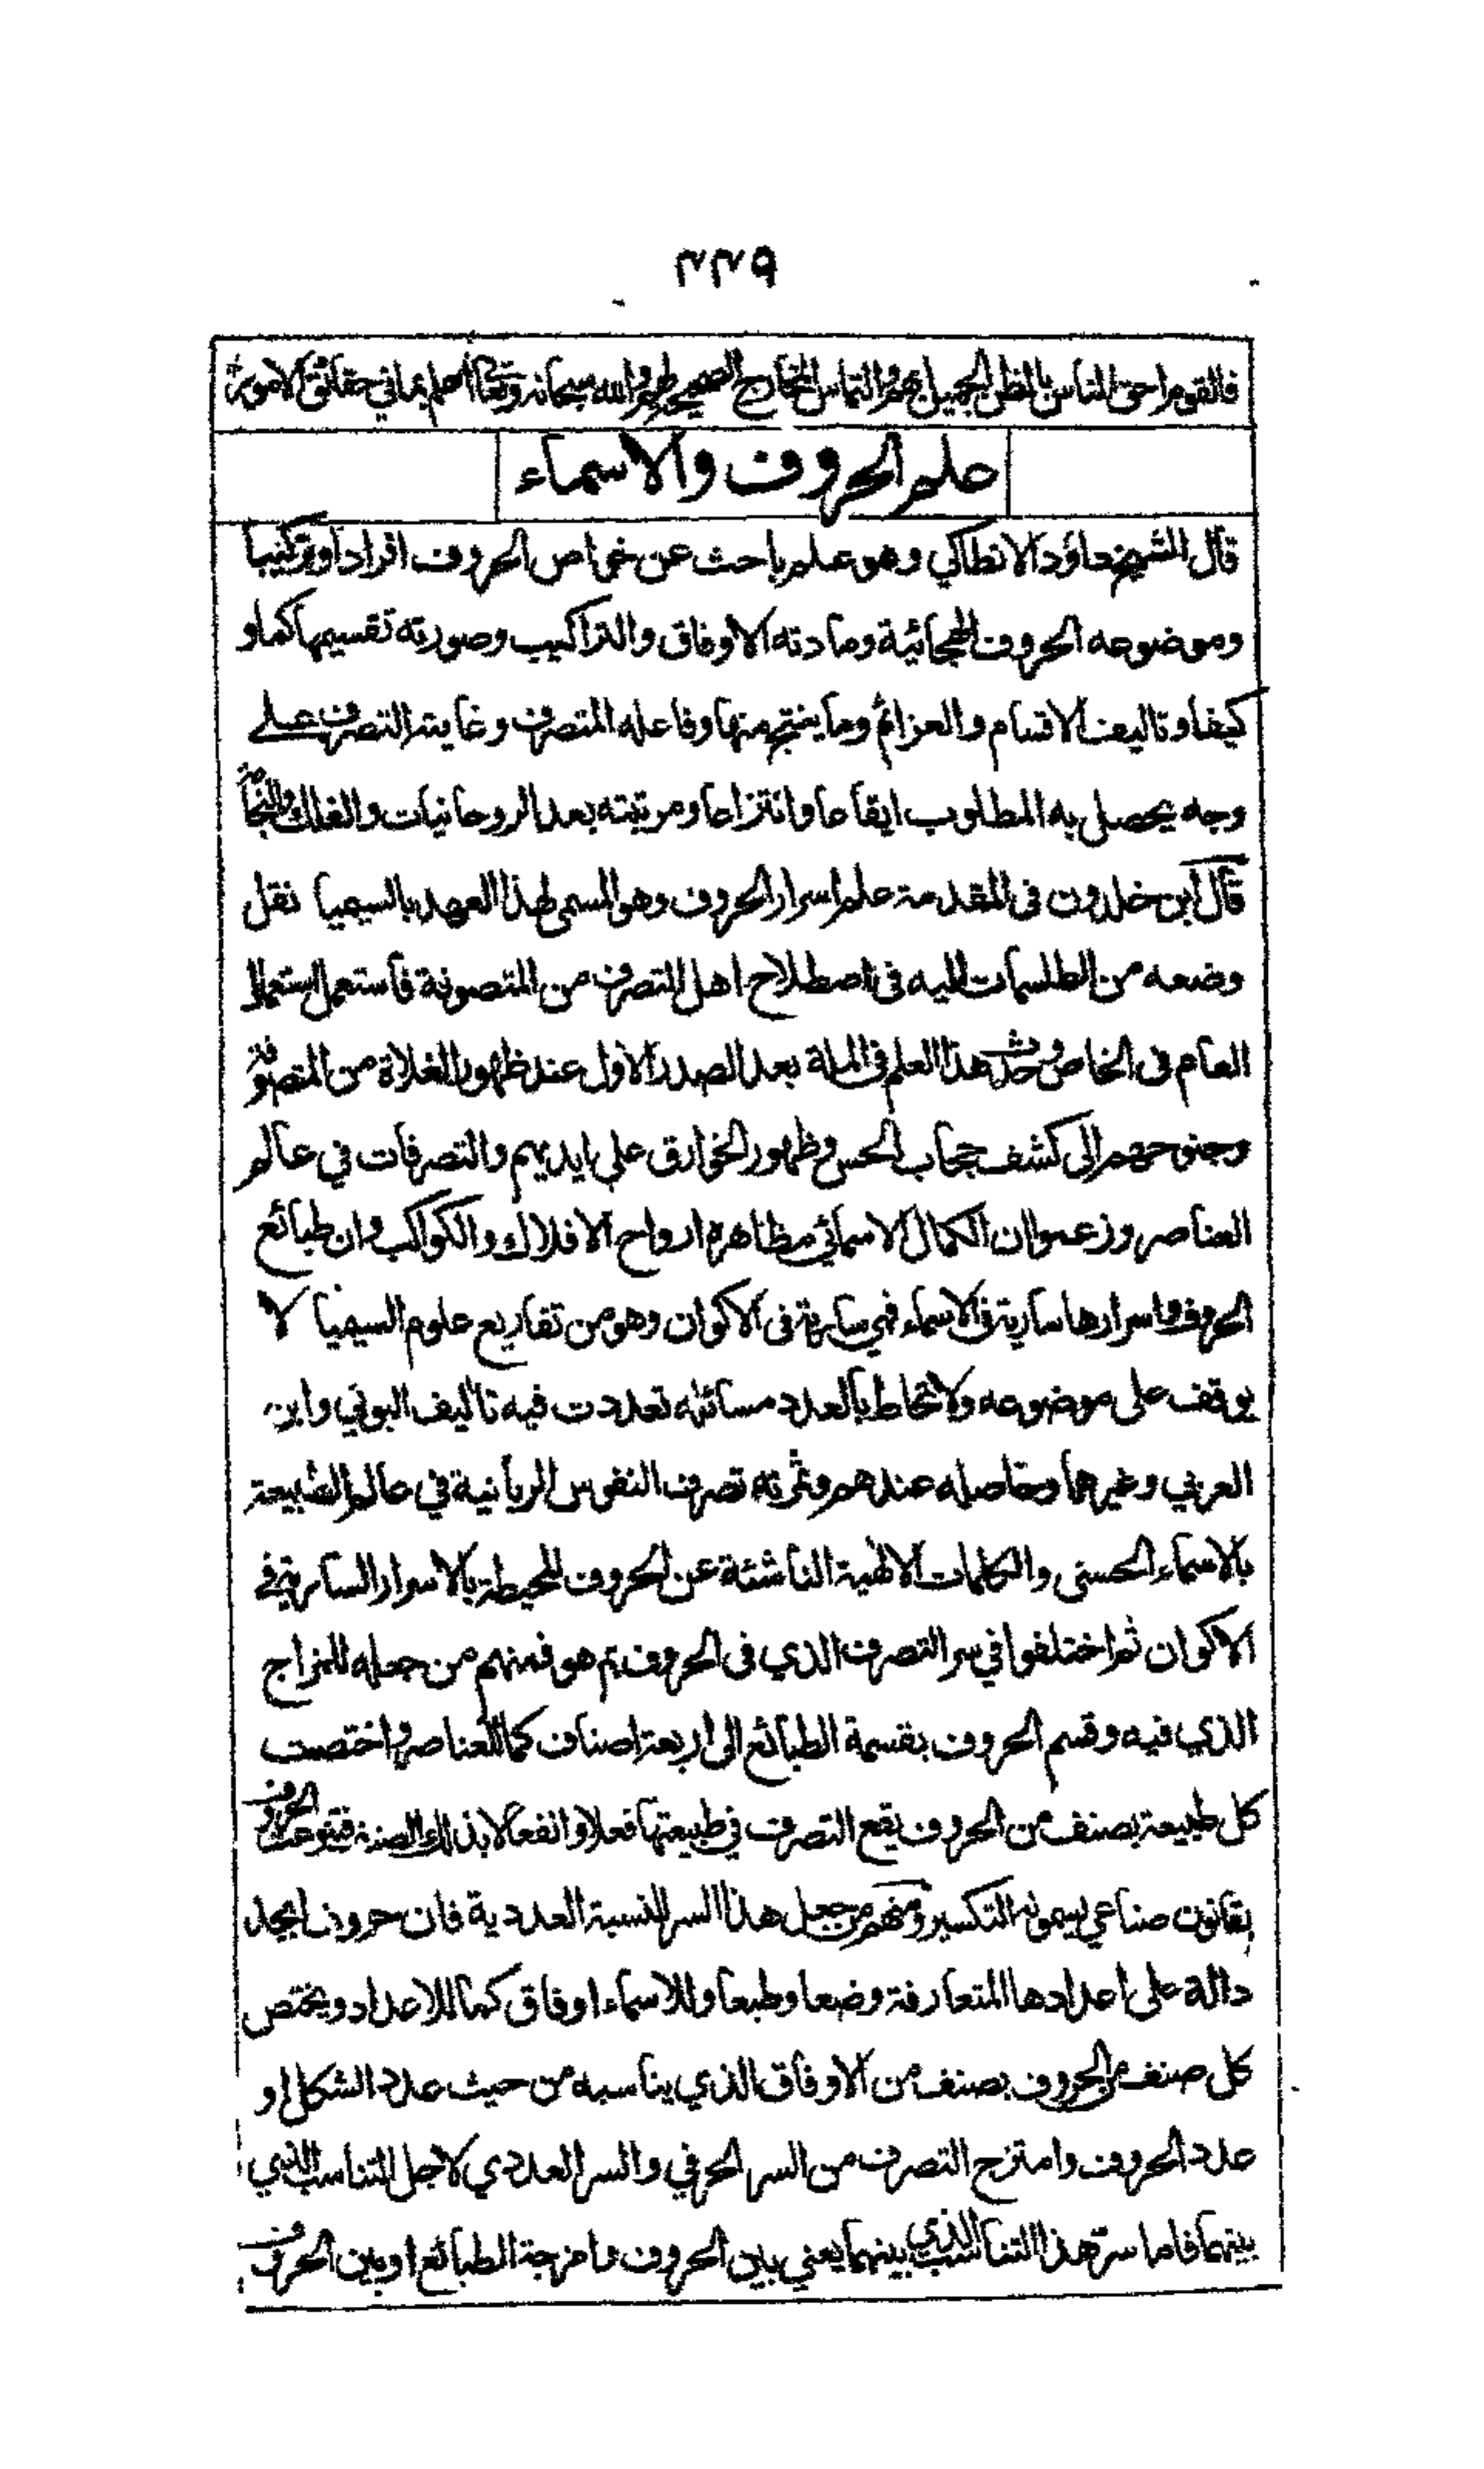 ٣٣٩
فالقوم احق الناس بالظن الجميل بهم والتماس المخارج الصحيح لهم والله سبحانه وتعالى اعلم بما في حقائق الامور
علم الحروف والاسماء
قال الشيخ داؤد الانطاكي وهو علم باحث عن خواص الحروف افرادا وتركيبا
وموضوعه الحروف الهجائية ومادته الاوفاق والتراكيب وصورته تقسيمها كما و
كيفا وتاليف الاقسام والعزائم وما ينتج منها وفاعله المتصرف وغايته التصرف على
وجه يحصل به المطلوب ايقاعا وانتزاعا ومرتبته بعد الروحانيات والفلك والنجامة
قال ابن خلدون في المقدمة علم اسرار الحروف وهو المسمى لهذا العهد بالسيميا نقل
وضعه من الطلسمات اليه في اصطلاح اهل التصرف من المتصوفة فاستعمل استعمال
العام في الخاص وحدث هذا العلم في الملة بعد الصدر الاول عند ظهور الغلاة من المتصوفة
وجنوحهم الى كشف حجاب الحس وظهور الخوارق على ايديهم والتصرفات في عالم
العناصر وزعموا ان الكمال الاسمائي مظاهره ارواح الافلاك والكواكب وان طبائع
الحروف واسرارها سارية في الاسماء فهي سارية في الاكوان وهو من تفاريع علوم السيميا لا
يوقف على موضوعه ولا تحاط بالعدد مسائله تعددت فيه تاليف البوني وابن
العربي وغيرهما وحاصله عندهم وثمرته تصرف النفوس الربانية في عالم الطبيعة
بالاسماء الحسنى والكلمات الالهية الناشئة عن الحروف المحيطة بالاسرار السارية في
الاكوان ثم اختلفوا في سر التصرف الذي في الحروف بم هو فمنهم من جعله للمزاج
الذي فيه وقسم الحروف بقسمة الطبائع الى اربعة اصناف كما للعناصر واختصت
كل طبيعة بصنف من الحروف يقع التصرف في طبيعتها فعلا وانفعالا بذلك الصنف فتنوعت الحروف
بقانون صناعي يسمونه التكسير ومنهم من جعل هذا السر للنسبة العددية فان حروف ابجد
دالة على اعدادها المتعارفة وضعا وطبعا وللاسماء اوفاق كما للاعداد ويختص
كل صنف من الحروف بصنف من الاوفاق الذي يناسبه من حيث عدد الشكل او
عدد الحروف وامتزج التصرف من السر الحرفي والسر العددي لاجل التناسب الذي
بينهما فاما سر هذا التناسب الذي بينهما يعني بين الحروف وامزجة الطبائع او بين الحروف